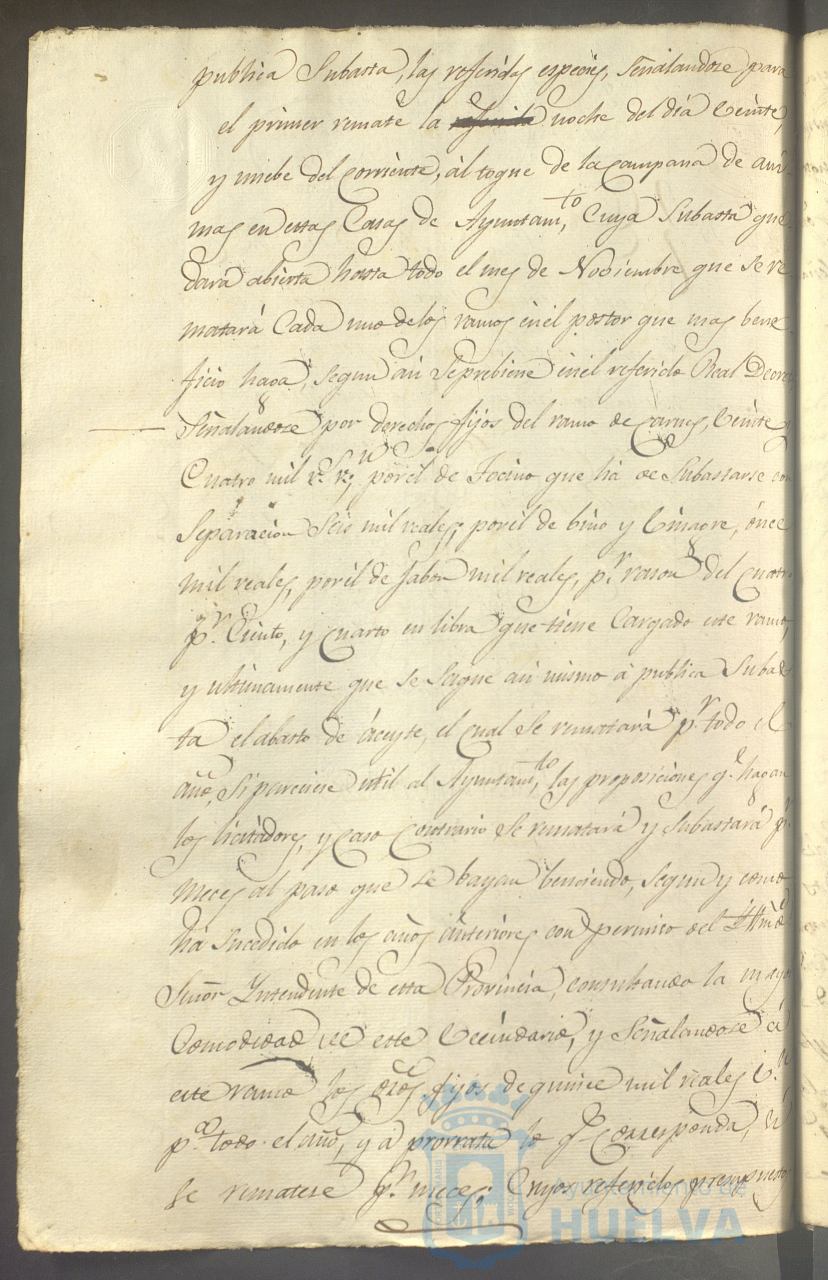 publica Subasta, las referidas especies, Señalandose para
el primer remate la noche del dia Veinte,
y niebe del Corriente, al toque de la campana de ani
mas en estas Casas de Ayuntam.to, Cuya Subasta que
dará abierta hasta todo el mes de Noviembre que se re
matará Cada uno de los ramos en el postor que mas bene
ficio haga, segun asi se prebiene en el referido Real Decreto
Señalandose por derechos fijos del ramo de Carnes, Veinte y
Cuatro mil r.s por el de Tocino que ha de Subastarse con
Separacion Seis mil reales; por el de bino y Vinagre, once
mil reales, por el de Jabon mil reales, p.r rason del Cuatro
p.r Ciento, y Cuarto en libra que tiene Cargado este ramo,
y ultimamente que se saque asi mismo á publica Subas
ta el abasto de aceyte, el cual se rematará p.r todo el
año, Si pareciese util al Ayuntam.to, las proposiciones q.e hagan
los licitadores, y Caso Contrario Se rematará y Subastará p.r
meces al paso que se bayan benciendo, segun y como
ha Sucedido en los años anteriores con permiso del
Señor Yntendente de esta Provincia, consultando la mayor
Comodidad de este Vecindario, y Señalandose á
este ramo los dros fijos de quince mil reales
p.a todo el año, y á prorrata lo q.e Corresponda, si
se rematase p.r meces; Cuyos referidos presupuestos
Ayuntamiento de
HUELVA